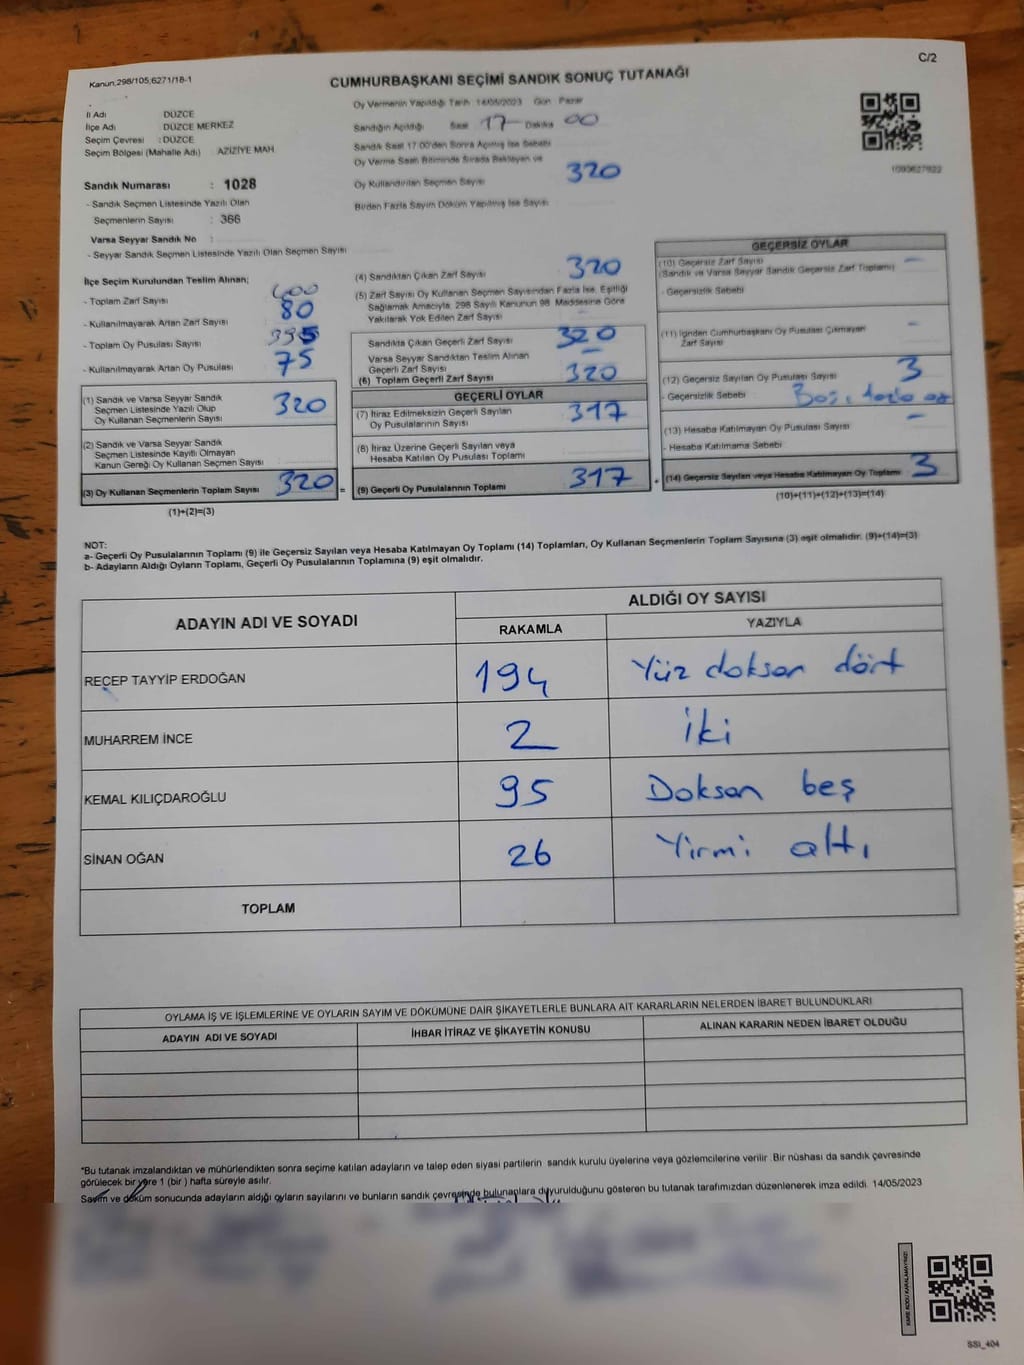 Kanun;298/105,6271/18-1
C/2
CUMHURBAŞKANI SEÇİMİ SANDIK SONUÇ TUTANAĞI
İl Adı DÜZCE
İlçe Adı DÜZCE MERKEZ
Seçim Çevresi : DÜZCE
Seçim Bölgesi (Mahalle Adı) AZİZİYE MAH.
Sandık Numarası : 1028
- Sandık Seçmen Listesinde Yazılı Olan
Seçmenlerin Sayısı : 366
Varsa Seyyar Sandık No :
- Seyyar Sandık Seçmen Listesinde Yazılı Olan Seçmen Sayısı
Oy Vermenin Yapıldığı Tarih : 14/05/2023 Gün : Pazar
Sandığın Açıldığı Saat 17 Dakika 00
Sandık Saat 17:00'den Sonra Açılmış İse Sebebi
Oy Verme Saati Bitiminde Sırada Bekleyen ve
Oy Kullandırılan Seçmen Sayısı 320
Birden Fazla Sayım Döküm Yapılmış İse Sayısı
1093627922
İlçe Seçim Kurulundan Teslim Alınan;
- Toplam Zarf Sayısı 400
- Kullanılmayarak Artan Zarf Sayısı 80
- Toplam Oy Pusulası Sayısı 395
- Kullanılmayarak Artan Oy Pusulası 75
(1) Sandık ve Varsa Seyyar Sandık
Seçmen Listesinde Yazılı Olup
Oy Kullanan Seçmenlerin Sayısı 320
(2) Sandık ve Varsa Seyyar Sandık
Seçmen Listesinde Kayıtlı Olmayan
Kanun Gereği Oy Kullanan Seçmen Sayısı
(3) Oy Kullanan Seçmenlerin Toplam Sayısı 320 =
(1)+(2)=(3)
(4) Sandıktan Çıkan Zarf Sayısı 320
(5) Zarf Sayısı Oy Kullanan Seçmen Sayısından Fazla İse, Eşitliği
Sağlamak Amacıyla, 298 Sayılı Kanunun 98. Maddesine Göre
Yakılarak Yok Edilen Zarf Sayısı
Sandıkta Çıkan Geçerli Zarf Sayısı 320
Varsa Seyyar Sandıktan Teslim Alınan
Geçerli Zarf Sayısı -
(6) Toplam Geçerli Zarf Sayısı 320
GEÇERLİ OYLAR
(7) İtiraz Edilmeksizin Geçerli Sayılan
Oy Pusulalarının Sayısı 317
(8) İtiraz Üzerine Geçerli Sayılan veya
Hesaba Katılan Oy Pusulası Toplamı
(9) Geçerli Oy Pusulalarının Toplamı 317 +
GEÇERSİZ OYLAR
(10) Geçersiz Zarf Sayısı -
(Sandık ve Varsa Seyyar Sandık Geçersiz Zarf Toplamı)
- Geçersizlik Sebebi
(11) İçinden Cumhurbaşkanı Oy Pusulası Çıkmayan -
Zarf Sayısı
(12) Geçersiz Sayılan Oy Pusulası Sayısı 3
- Geçersizlik Sebebi
(13) Hesaba Katılmayan Oy Pusulası Sayısı -
- Hesaba Katılmama Sebebi
(14) Geçersiz Sayılan veya Hesaba Katılmayan Oy Toplamı 3
(10)+(11)+(12)+(13)=(14)
NOT:
a- Geçerli Oy Pusulalarının Toplamı (9) ile Geçersiz Sayılan veya Hesaba Katılmayan Oy Toplamı (14) Toplamları, Oy Kullanan Seçmenlerin Toplam Sayısına (3) eşit olmalıdır. (9)+(14)=(3)
b- Adayların Aldığı Oyların Toplamı, Geçerli Oy Pusulalarının Toplamına (9) eşit olmalıdır.
ADAYIN ADI VE SOYADI
ALDIĞI OY SAYISI
RAKAMLA YAZIYLA
RECEP TAYYİP ERDOĞAN 194 Yüz doksan dört
MUHARREM İNCE 2 İki
KEMAL KILIÇDAROĞLU 95 Doksan beş
SİNAN OĞAN 26 Yirmi altı
TOPLAM
OYLAMA İŞ VE İŞLEMLERİNE VE OYLARIN SAYIM VE DÖKÜMÜNE DAİR ŞİKAYETLERLE BUNLARA AİT KARARLARIN NELERDEN İBARET BULUNDUKLARI
ADAYIN ADI VE SOYADI İHBAR İTİRAZ VE ŞİKAYETİN KONUSU ALINAN KARARIN NEDEN İBARET OLDUĞU
*Bu tutanak imzalandıktan ve mühürlendikten sonra seçime katılan adayların ve talep eden siyasi partilerin sandık kurulu üyelerine veya gözlemcilerine verilir .Bir nüshası da sandık çevresinde
görülecek bir yere 1 (bir ) hafta süreyle asılır.
Sayım ve döküm sonucunda adayların aldığı oyların sayılarını ve bunların sandık çevresinde bulunanlara duyurulduğunu gösteren bu tutanak tarafımızdan düzenlenerek imza edildi. 14/05/2023
KARE KODU KARALAMAYINIZ!
SSI_404